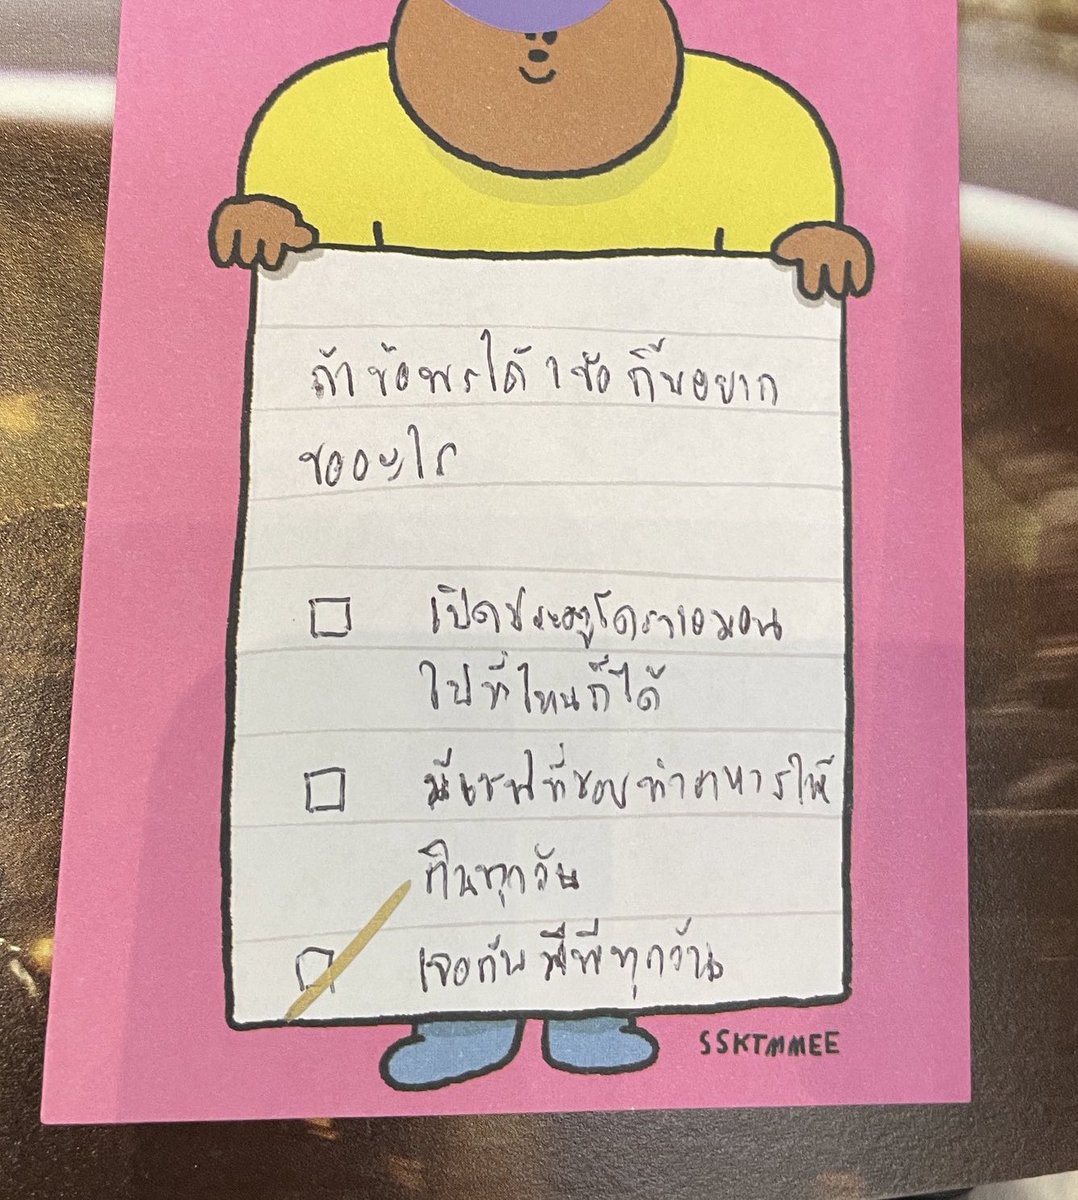 ถ้าข้อพรได้ 1 ข้อ กิ้นอยาก
ขออะไร
เปิดประตูโดราเอมอน
ไปที่ไหนก็ได้
มีเชฟที่ชอบทำอาหารให้
กินทุกวัน
เจอกับ พีพีทุกวัน
SSKTMMEE